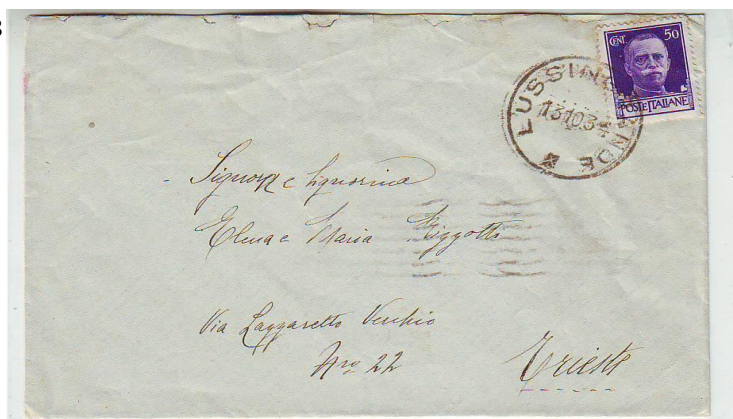 CENT. 50
POSTE ITALIANE
LUSSINGRANDE
13.10.34
Signora e Signorina
Elena e Maria
Via Lazzaretto Vecchio
Nro 22
Trieste